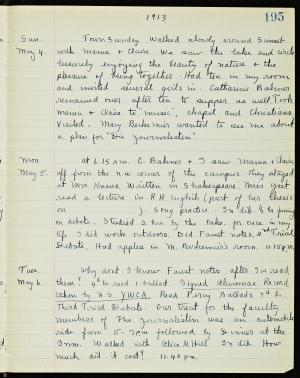 1913
195
Sun. Town Sunday. Walked slowly around Sunset
May 4. with mama & Claire. We saw the lake and circle
leisurely enjoying the beauty of nature & the
pleasure of being together. Had tea in my room
and invited several girls in. Catharine Bahner
remained over after tea to supper as well. Took
mama & Claire to music, chapel and Christians
Visited. May Berkemeier wanted to see me about
a plan for "Die Journalisten"
Mon. at 6.15 A.M. C. Bahner & I saw Mama & Claire
May 5. off from the N.W. corner of the campus. They stayed
at Mrs. Written in Shakespeare. Miss Yost
read a lecture in R.R. English (part of her thesis
on ). Song practice. In lib. for
on debate. Studied 2 hrs by the lake, for once in my
life I did work outdoors. Did Faust notes, 2nd Trial
Debate. Had apples in M. Berkemeier's room. 10.15 P.M.
Tues. Why don't I know Faust notes after I've read
May 6. them? 4th hr I balled. Signed Alumnae Record
taken by N.S. YWCA. Read Percy Ballads. 4th
Third Trial Debate. Our treat for the faculty
members of the Journalisten was an automobile
ride from 5-7 PM followed by dinner at the
Inn. Walked with Alice M. Hill. In lib. How
much did it cost? 11.40 P.M.